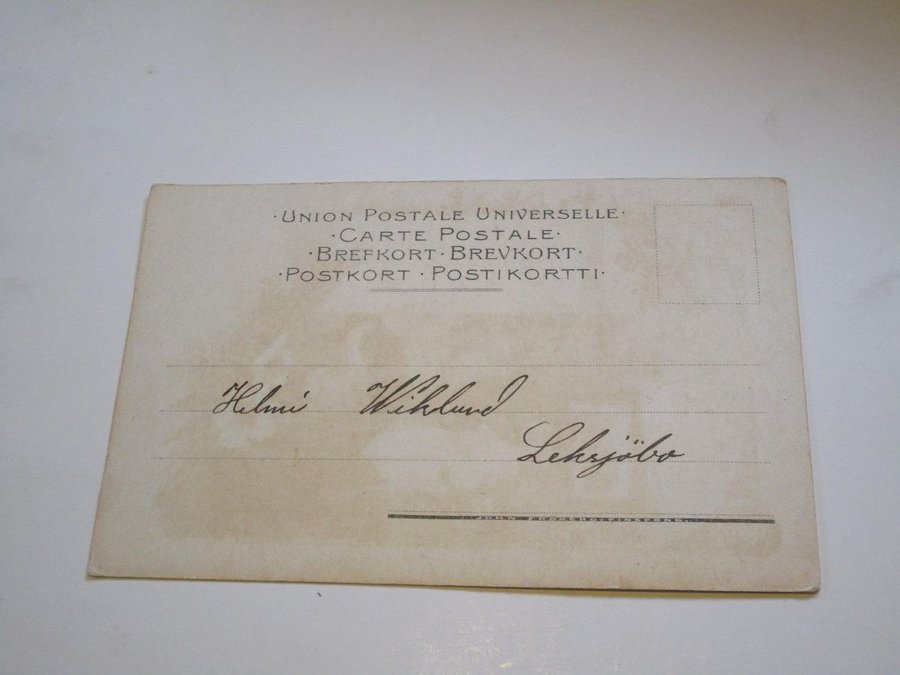 ·UNION POSTALE UNIVERSELLE·
·CARTE POSTALE·
·BREFKORT·BREVKORT·
·POSTKORT·POSTIKORTTI·
Helmi Wiklund
Leksjöbo
JOHN FRÖBERG, FINSPONG.